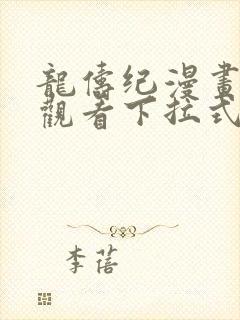 龍儔纪漫畫
觀看下拉式
李蓓